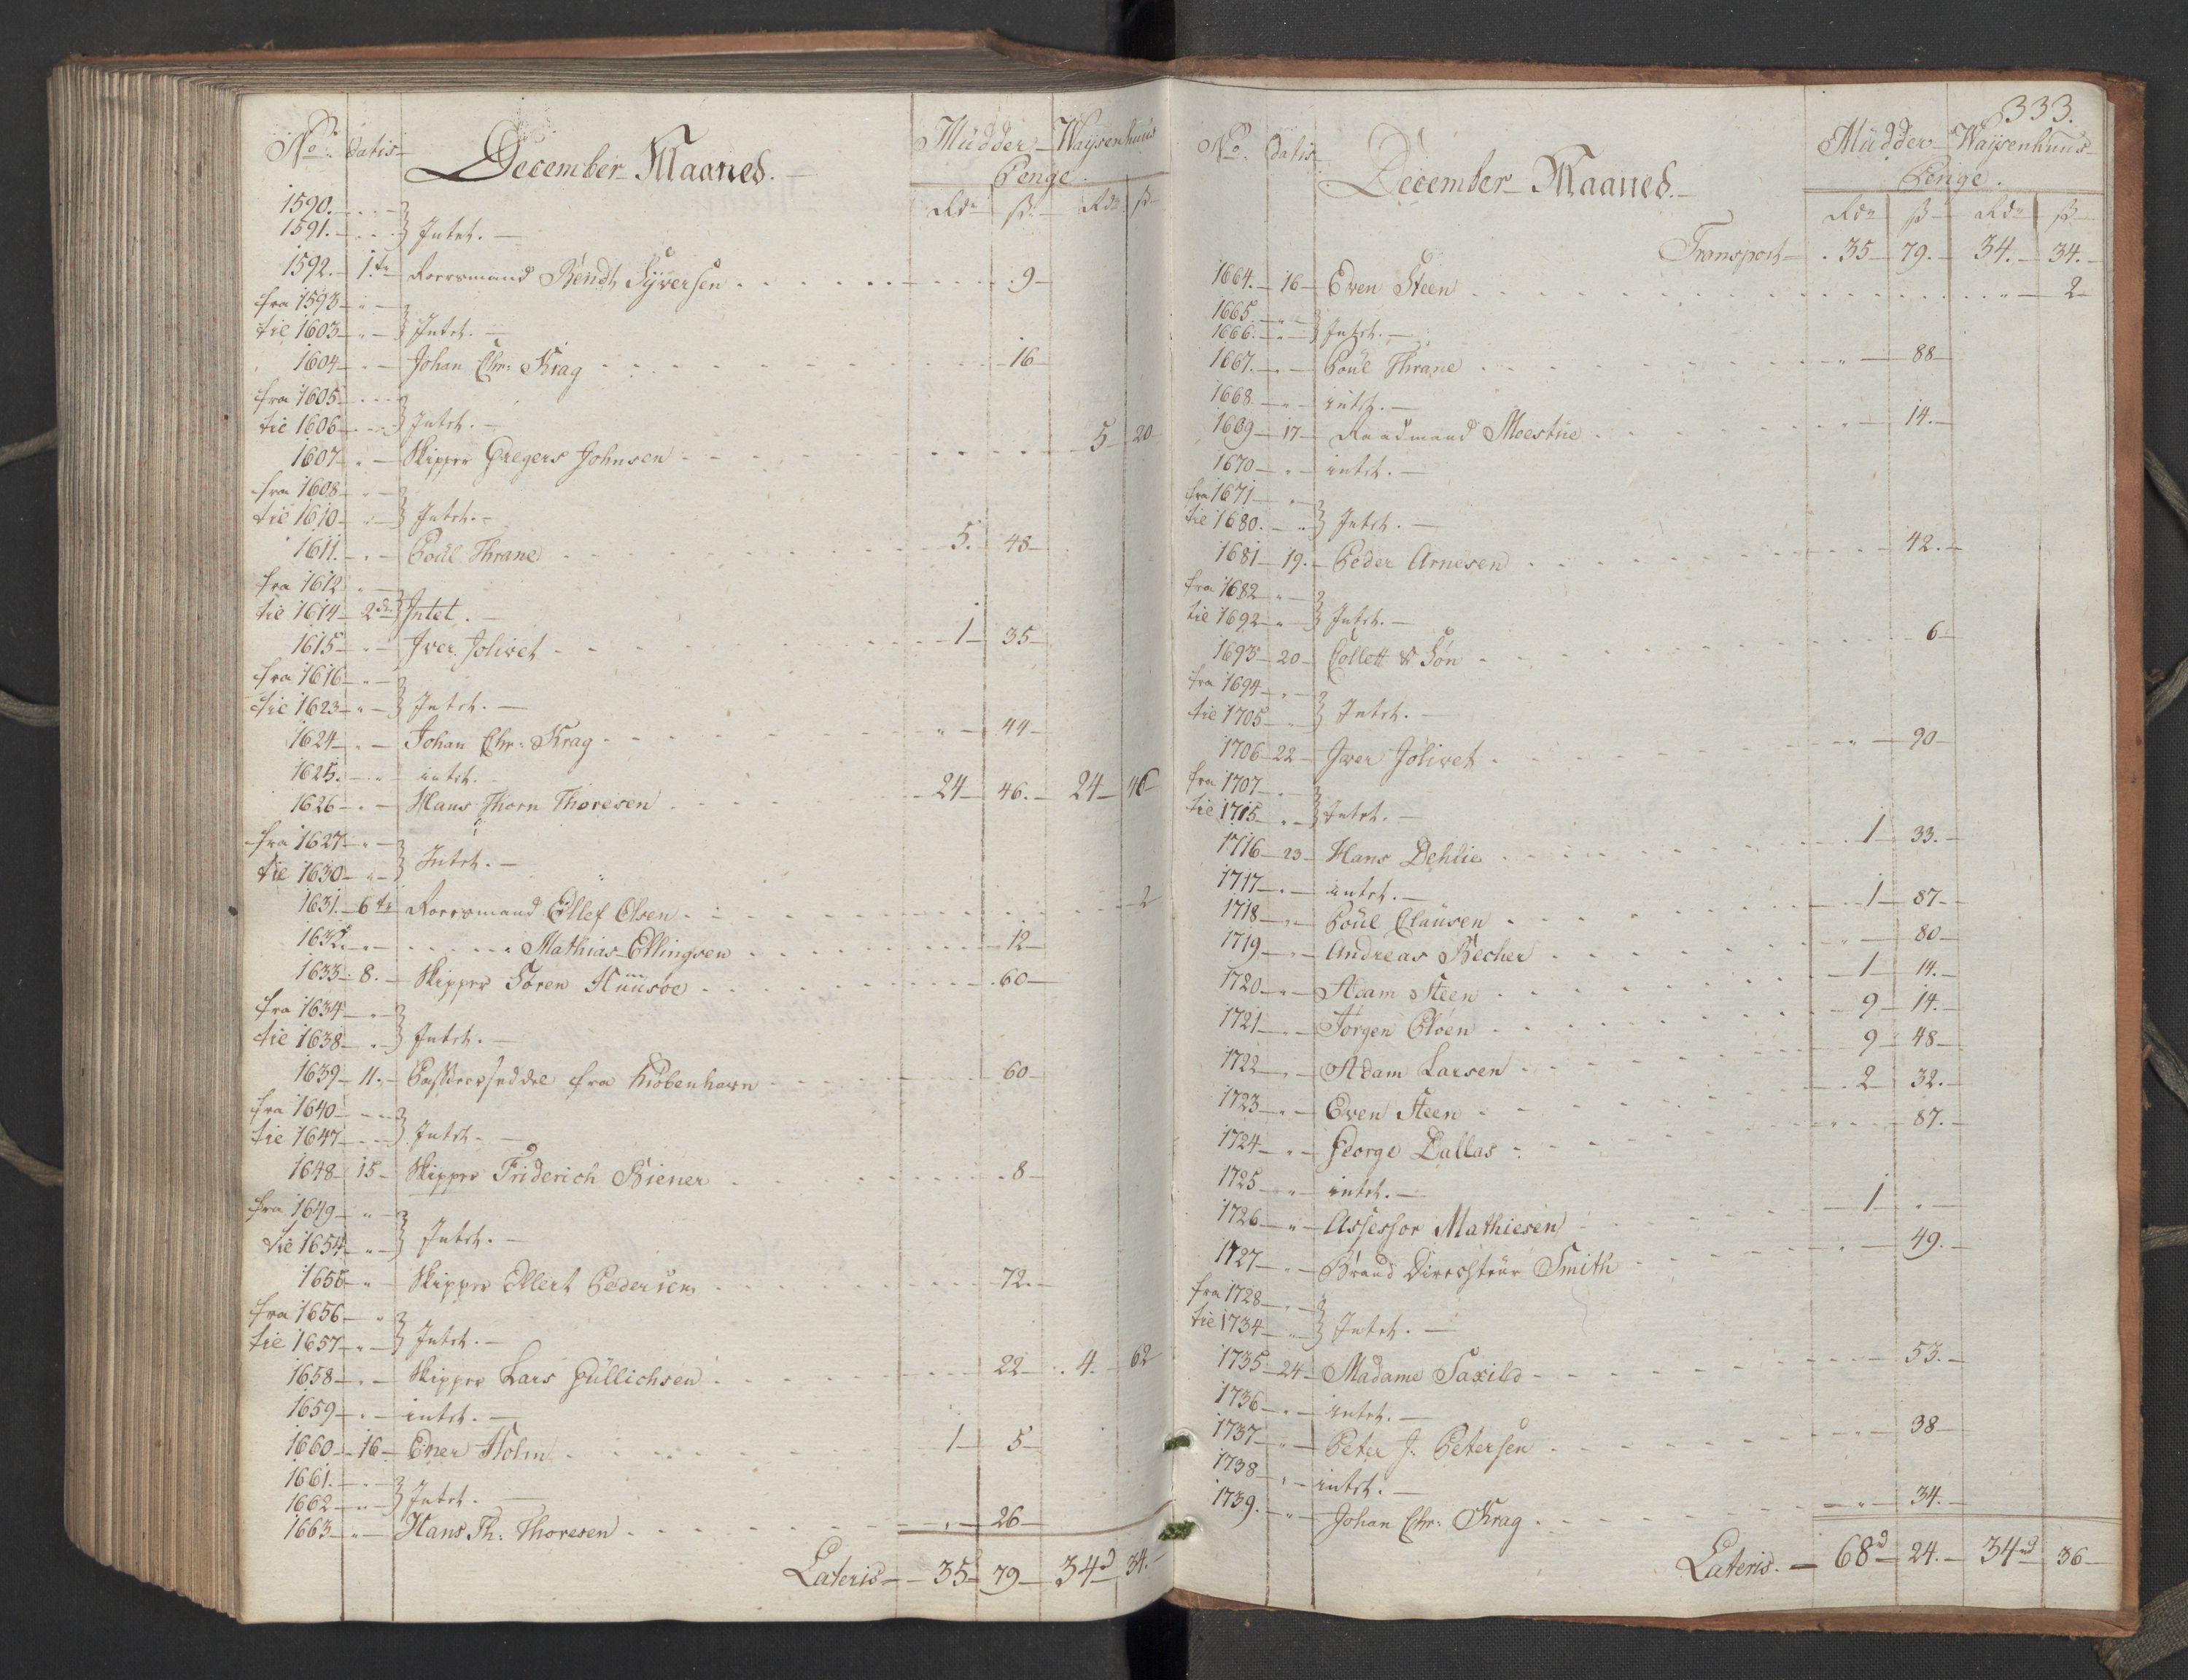 No. datis December Maaned. Mudder Waysenhuus
Penge.
Rdr ß Rdr ß
1590.
1591. Intet.
1592. 1te Roersmand Bendt Syversen 9
fra 1593
til 1603 Intet.
1604 Johan Chr: Krag 16
fra 1605
til 1606 Intet.
1607 Skipper Gregers Johnsen 5 20
fra 1608
til 1610 Intet.
1611. Poul Thrane 5. 48
fra 1612
til 1614 2den Intet.
1615 Iver Jolivet 1 35
fra 1616
til 1623 Intet.
1624 Johan Chr: Krag 44
1625. intet.
1626 Hans Thorn Thoresen 24 46. 24 46
fra 1627
til 1630 Intet.
1631. 6te Roersmand Ellef Olsen 2
1632. Mathias Ellingsen 12
1633 8. Skipper Søren Huusoe 60
fra 1634
til 1638 Intet.
1639 11. Passeerseddel fra Kiøbenhavn 60
fra 1640
til 1647 Intet.
1648 15 Skipper Friderich Biener 8
fra 1649
til 1654 Intet.
1655 Skipper Ellert Pedersen 72.
fra 1656
til 1657 Intet.
1658 Skipper Lars Gullichsen 22 4. 62
1659 intet.
1660 16 Ener Holm 1 5
1661.
1662 Intet.
1663 Hans Th: Thoresen 26
Lateris 35 79 34d 34.
333.
No. Datis December Maaned. Mudder Waysenhuus
Penge.
Rdr ß Rdr ß
Transport 35 79. 34. 34.
1664. 16 Even Steen 2
1665.
1666. Intet.
1667. Poul Thrane 88
1668. intet.
1669 17 Raadmand Moestue 14.
1670 intet.
fra 1671
til 1680. Intet.
1681 19. Peder Arnesen 42.
fra 1682
til 1692 Intet.
1693 20 Collett & Søn 6
fra 1694
til 1705 Intet.
1706 22 Iver Jolivet 90
fra 1707
til 1715 Intet.
1716 23 Hans Dehlie 1 33.
1717 intet.
1718 Poul Clausen 1 87
1719 Andreas Becher 80
1720 Adam Steen 1 14.
1721 Jørgen Cloen 9 14.
1722 Adam Larsen 9 48
1723 Even Steen 2 32.
1724 George Dallas 87.
1725 intet.
1726 Assessor Mathiesen 1
1727 Brand Directeur Smith 49.
fra 1728
til 1734 Intet.
1735 24 Madame Saxild 53.
1736 intet.
1737 Peter J. Petersen 38
1738 intet.
1739. Johan Chr: Krag 34.
Lateris. 68d 24. 34d 36